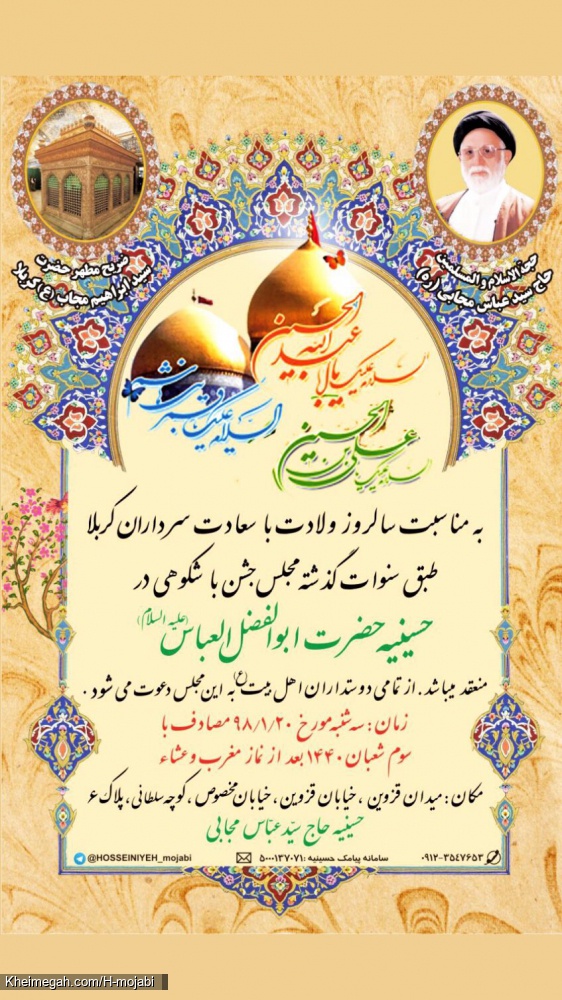 حجة الاسلام و المسلمین
حاج سید عباس مجابی (ره)
ضریح مطهر حضرت
سید ابراهیم مجاب (ع) کربلا
السلام علیک یا ابا عبدالله الحسین
السلام علیک یا قمر بنی هاشم
السلام علیک یا علی بن الحسین
به مناسبت سالروز ولادت با سعادت سرداران کربلا
طبق سنوات گذشته مجلس جشن با شکوهی در
حسینیه حضرت ابوالفضل العباس (علیه السلام)
منعقد میباشد . از تمامی دوستداران اهل بیت (ع) به این مجلس دعوت می شود .
زمان : سه شنبه مورخ ۹۸/۱/۲۰ مصادف با
سوم شعبان ۱۴۴۰ بعد از نماز مغرب و عشاء
مکان : میدان قزوین ، خیابان قزوین ، خیابان مخصوص ، کوچه سلطانی ، پلاک ۶
حسینیه حاج سیّد عبّاس مجابی
۰۹۱۲-۳۵۴۷۶۵۳ سامانه پیامک حسینیه : ۵۰۰۰۱۳۷۰۷۱ @HOSSEINIYEH_mojabi
Kheimegah.com/H-mojabi